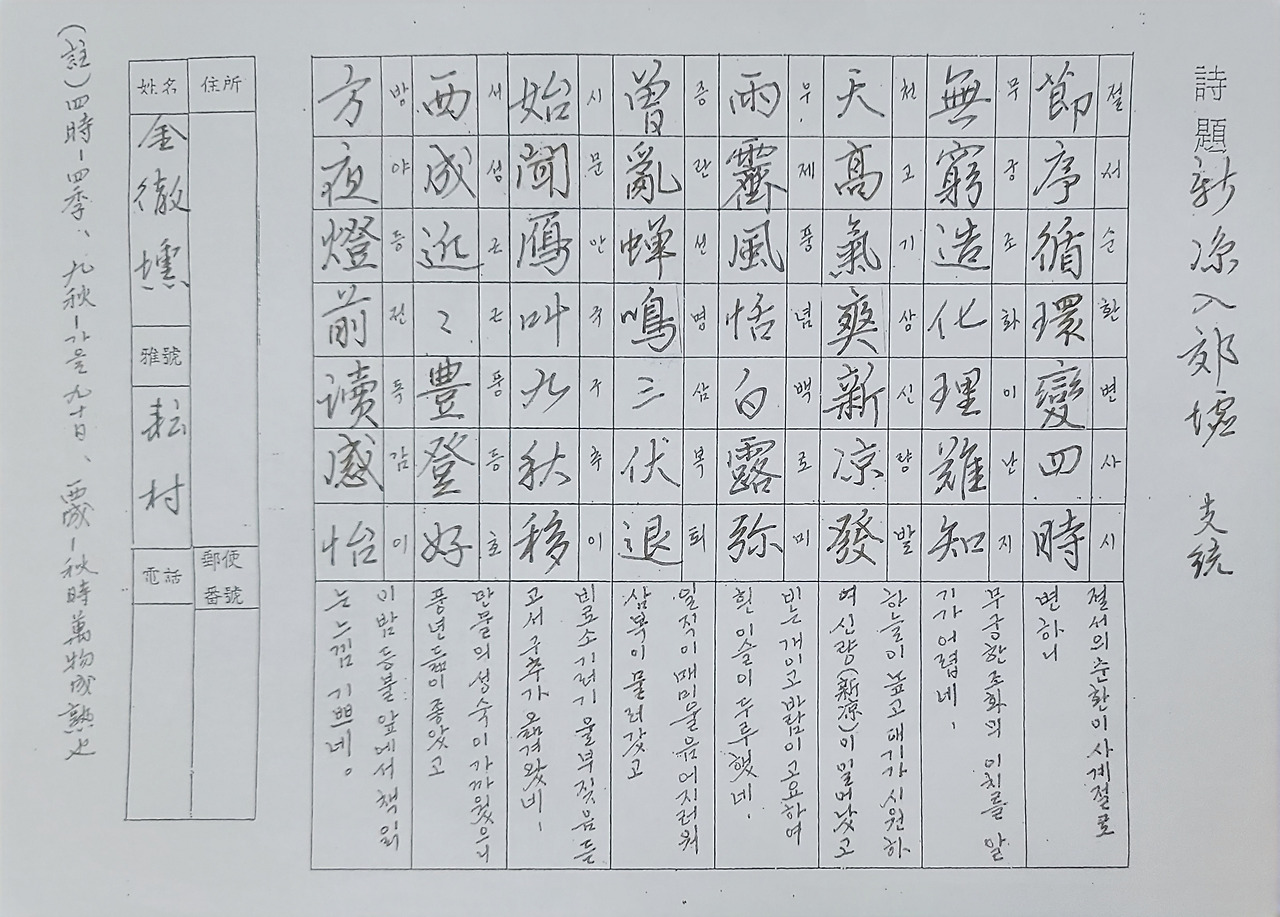 詩題 新凉入郊墟 支統
절서순환변사시
節序循環變四時
절서의 순환이 사계절로
변하니
무궁조화이난지
無窮造化理難知
무궁한 조화의 이치를 알
기가 어렵네.
천고기상신량발
天高氣爽新凉發
하늘이 높고 대기가 시원하
여 신량(新凉)이 일어났고
우제풍념백로미
雨霽風恬白露弥
비는 개이고 바람이 고요하여
흰 이슬이 두루했네.
증란선명삼복퇴
曾亂蝉鳴三伏退
일직이 매미 울음 어지러워
삼복이 물러갔고
시문안규구추이
始聞鴈叫九秋移
비로소 기러기 울부짖음 듣
고서 구추가 옮겨왔네.
서성근근풍등호
西成近〻豊登好
만물의 성숙이 가까웠으니
풍년듦이 좋았고
방야등전독감이
方夜燈前讀感怡
이 밤 등불 앞에서 책 읽
는 느낌 기쁘네。
住所
郵便番號
姓名 金徹壎
雅號 耘村
電話
(註) 四時-四季、九秋-가을九十日、西成-秋時萬物成熟也